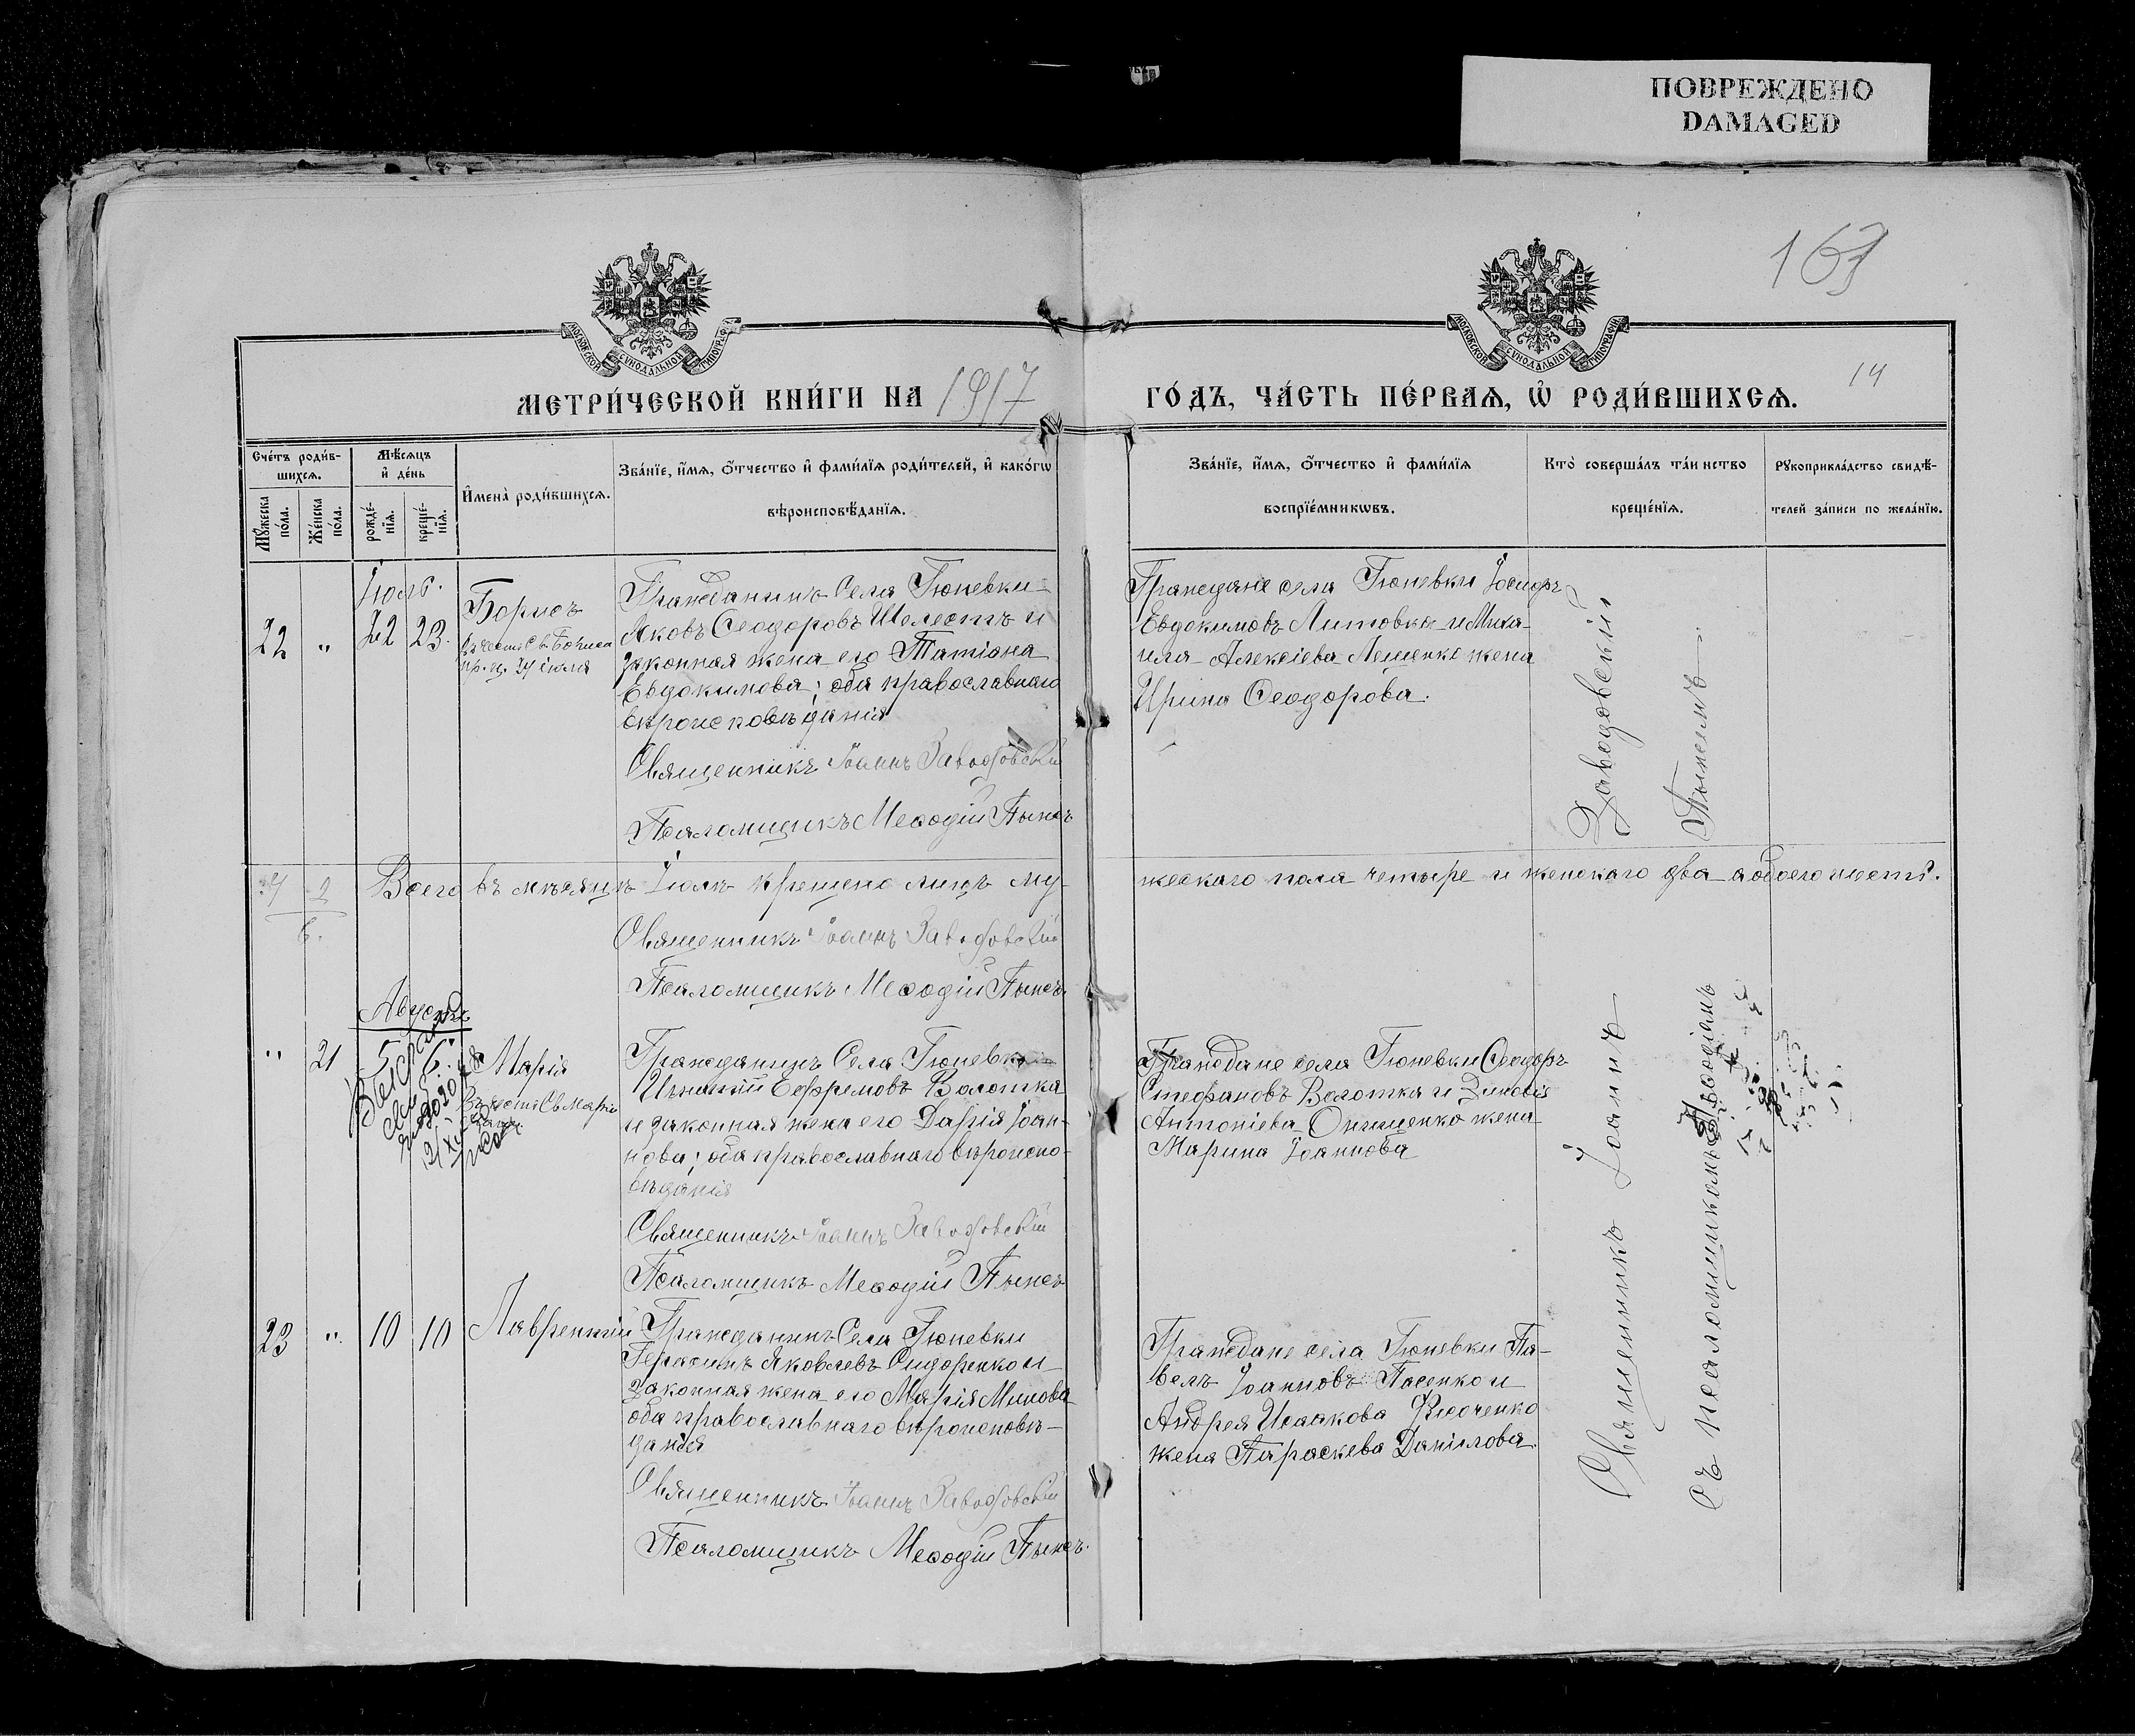 ПОВРЕЖДЕНО
DAMAGED
МОСКОВСКОЙ СѴНОДАЛЬНОЙ ТИПОГРАФІИ
МОСКОВСКОЙ СѴНОДАЛЬНОЙ ТИПОГРАФІИ
14
МЕТРИ́ЧЕСКОЙ КНИ́ГИ НА 1917 ГО́ДЪ, ЧА́СТЬ ПЕ́РВАѦ, Ѡ҆ РОДИ́ВШИХСѦ.
Сче́тъ роди́в-
шихсѧ.
Мꙋ́жеска по́ла.
Же́нска по́ла.
Мѣ́сѧцъ
и҆ де́нь
рожде́-
нїѧ.
креще́-
нїѧ.
И҆мена̀ роди́вшихсѧ.
Зва́нїе, и҆́мѧ, ѻ҆́тчество и҆ фами́лїѧ роди́телей, и҆ како́гѡ
вѣроисповѣ́данїѧ.
Зва́нїе, и҆́мѧ, ѻ҆́тчество и҆ фами́лїѧ
воспрїе́мникѡвъ.
Кто̀ соверша́лъ та́инство
креще́нїѧ.
Рꙋкоприкла́дство свидѣ́-
телей за́писи по жела́нїю.
Іюль.
22 " 22 23.
Борисъ
въ честь Св Бориса
пр. ц. 24 іюля
Гражданинъ Села Гюневки
Яковъ Ѳеодоровъ Шелестъ и
законная жена его Татіана
Евдокимова; оба православнаго
вѣроисповѣданія
Священникъ Іоаннъ Заводовскій
Псаломщикъ Меѳодій
Граждане села Гюневки Іосифъ
Евдокимовъ Литовка и Миха-
ила Алексіева Лещенко жена
Ирина Ѳеодорова.
4 2
6.
Всего въ мѣсяцѣ Іюлѣ крещено лицъ му-
жескаго пола четыре и женскаго два а обоего шесть.
Священникъ Іоаннъ Заводовскій
Псаломщикъ Меѳодій
Августъ
" 21 5 6.
Марія
Въ честь Св Маріи
Гражданинъ Села Гюневки
Ефремовъ Волошка
и законная жена его Дарія Іоан-
нова; оба православнаго вѣроиспо-
вѣданія
Священникъ Іоаннъ Заводовскій
Псаломщикъ Меѳодій
Граждане села Гюневки Ѳеодоръ
Стефановъ Волошка и Зиновія
Антоніева Онищенко жена
Марина Іоаннова
23 " 10 10
Лаврентій
Гражданинъ Села Гюневки
Герасимъ Яковлевъ Сидоренко и
законная жена его Марія Минова
оба православнаго вѣроисповѣ-
данія
Священникъ Іоаннъ Заводовскій
Псаломщикъ Меѳодій
Граждане села Гюневки Па-
велъ Іоанновъ Пасенко и
Андрея Исаакова Кисоченко
жена Параскева Даніилова.
Священникъ Іоаннъ Заводовскій
Съ псаломщикомъ Меѳодіемъ